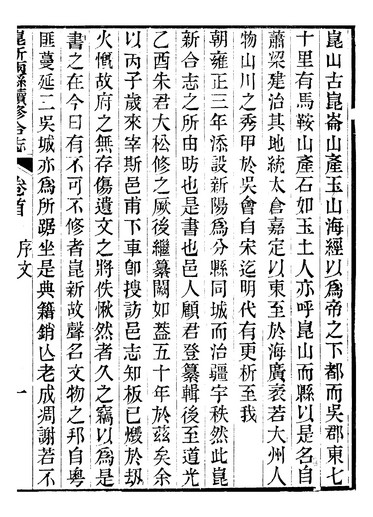 崑山古崑崙山產玉山海經以爲帝之下都而吳郡東七
十里有馬鞍山產石如玉土人亦呼崑山而縣以是名自
蕭梁建治其地統太倉嘉定以東至於海廣袤若大州人
物山川之秀甲於吳會自宋迄明代有更析至我
朝雍正三年添設新陽爲分縣同城而治疆宇秩然此崑
新合志之所由昉也是書也邑人顧君登纂輯後至道光
乙酉朱君大松修之厥後繼纂闕如葢五十年於茲矣余
以丙子歲來宰斯邑甫下車卽搜訪邑志知板已燬於刼
火慨故府之無存傷遺文之將佚愀然者久之竊以爲是
書之在今日有不可不修者崑新故聲名文物之邦自粤
匪蔓延二吳城亦爲所踞坐是典籍銷亾老成凋謝若不
崑新兩縣續修合志
卷首 序文 一